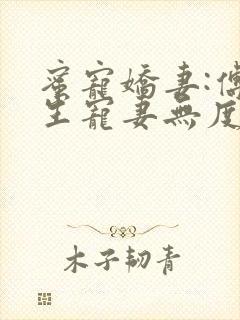 蜜寵嬌妻:傅
生寵妻無度
木子韌青